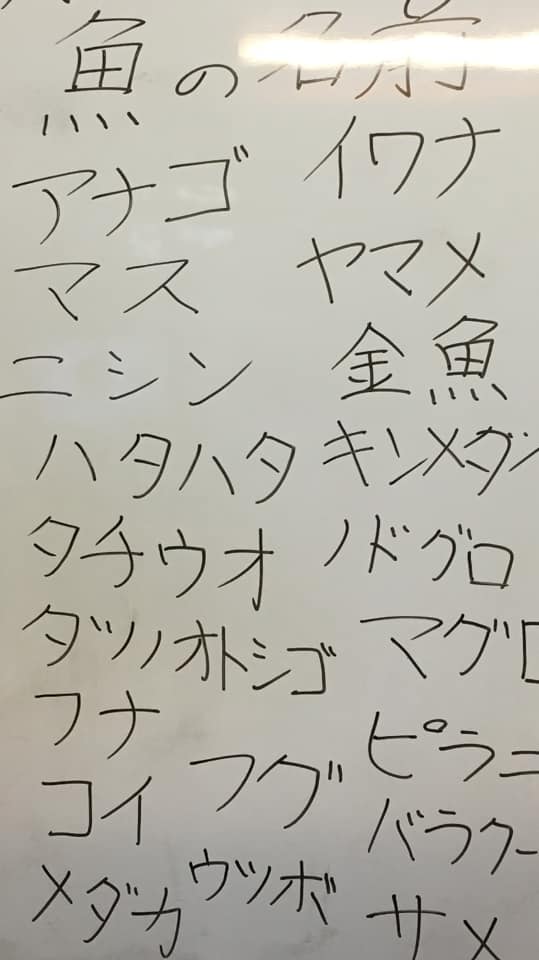 魚の名前
アナゴ
マス
ニシン
ハタハタ
タチウオ
タツノオトシゴ
フナ
コイ
メダカ
フグ
ウツボ
イワナ
ヤマメ
金魚
キンメダ
ノドグロ
マグロ
ピラニ
バラクー
サメ